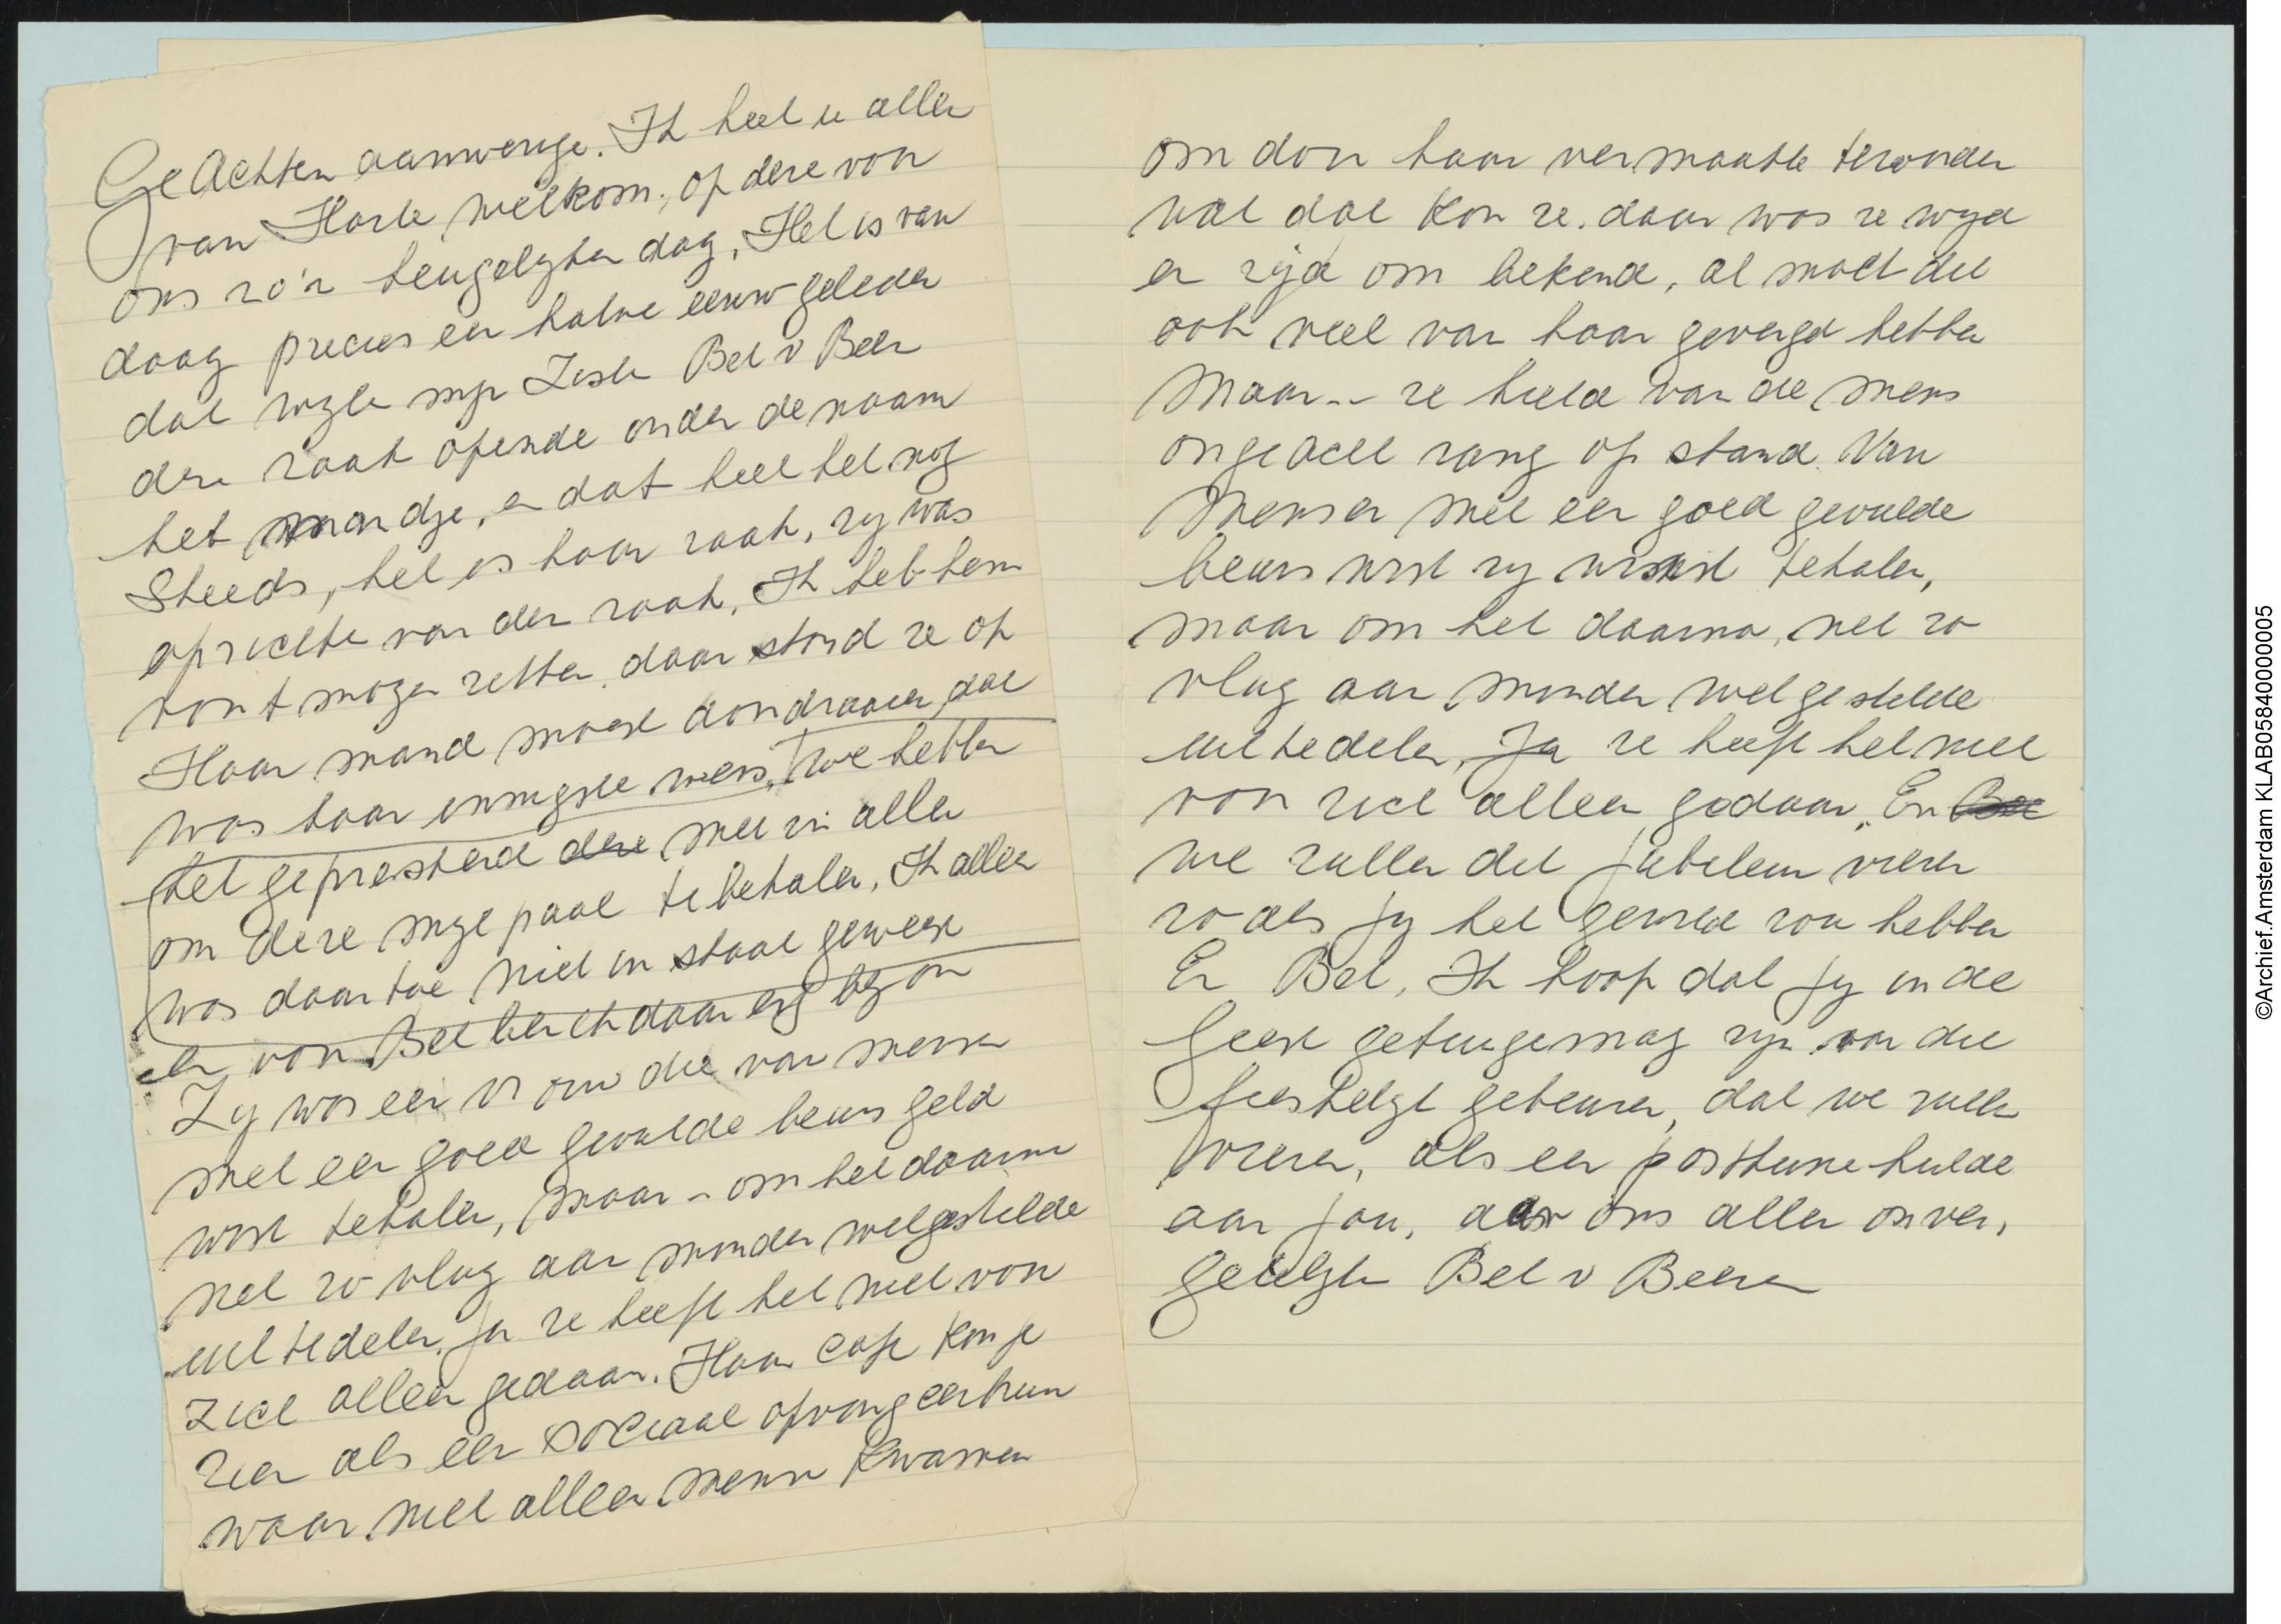 GeAchten aanwezige. Ik heet u allen
van Harte welkom, op deze voor
ons zo'n heugelyken dag, Het is van
daag precies een halve eeuw geleden
dat wyle myn Zuster Bet v Beeren
deze zaak opende onder de naam
het mandje, en dat heet het nog
Steeds, het is haar zaak, zy was
oprichte van den zaak, Ik heb hem
voort mogen zetten, daar stond ze op
Haar mand moest doordraaien, dat
was haar innigste wens. we hebben
het gepresteerd deze met zn allen
om deze myle paal te behalen, Ik alleen
was daar toe niet in staat geweest
en voor Bet ben ik daar erg bly om
Zy was een vrouw die van mensen
met een goed gevulde beurs geld
wist te halen, maar - om het daarna
net zo vlug aan minder welgestelde
uit te delen. Ja ze heeft het niet voor
zich alleen gedaan. Haar cafe kon je
zien als een sociaal opvang centrum
waar niet alleen mensen kwamen
om door haar vermaakt te worden
wat dat kon ze. daar was ze wyd
en zyd om bekend, al moet dit
ook veel van haar gevergd hebben
Maar -- ze hield van de mens
ongeacht rang of stand. Van
Mensen met een goed gevulde
beurs wist zy winst te halen,
maar om het daarna, net zo
vlug aan minder welgestelde
uit te delen, Ja ze heeft het niet
voor zich alleen gedaan. En Bet
we zullen dit jubileum vieren
zo als jy het gewild zou hebben
En Bet, Ik hoop dat jy in de
Geest getuige mag zyn van dit
feestelyk gebeuren, dat we zullen
vieren, als een posthume hulde
aan jou, aan ons allen onver,
getelyke Bet v Beeren
©Archief.Amsterdam KLAB05840000005